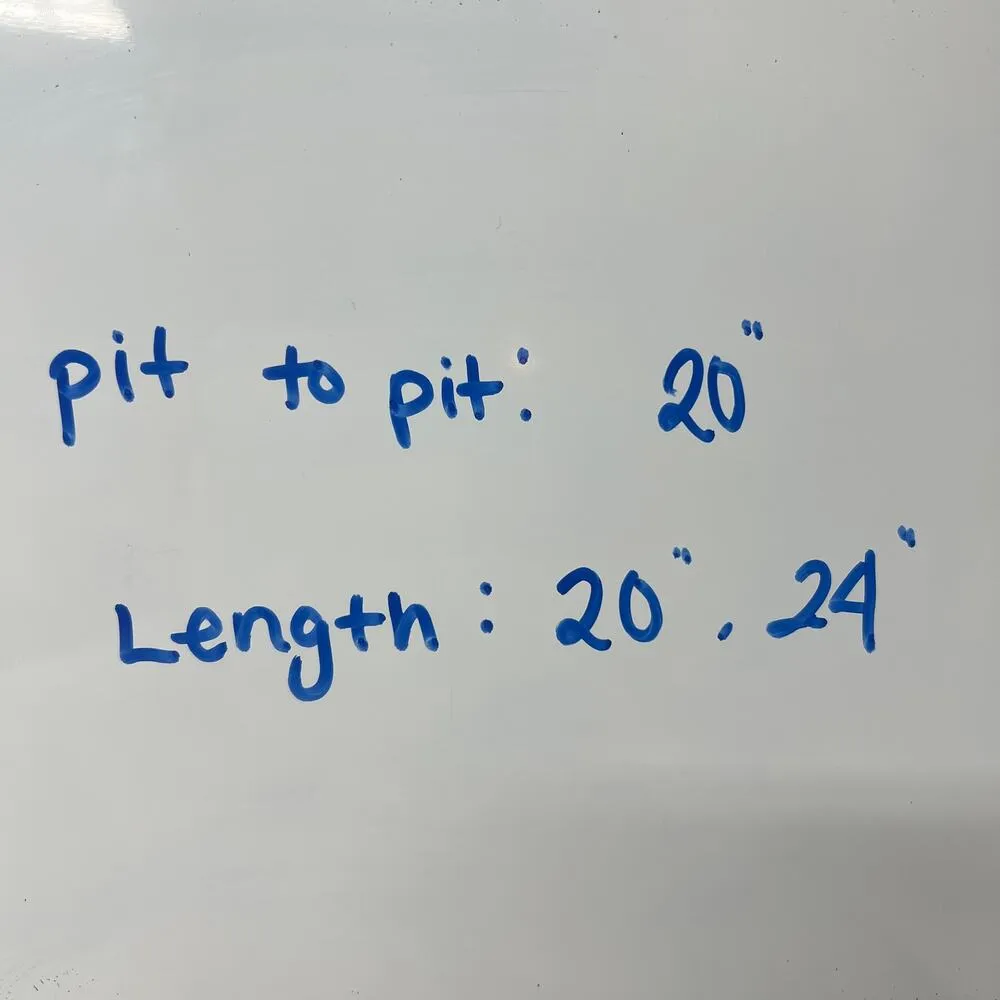 pit to pit: 20"
Length: 20", 24"